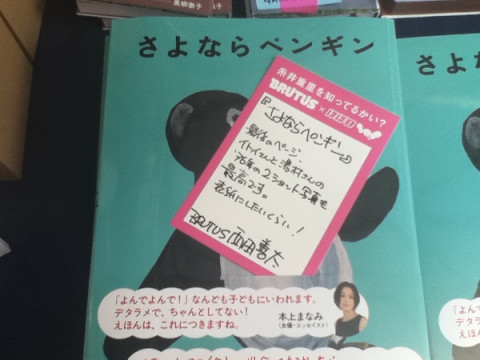 さよならペンギン
糸井重里を知ってるかい？
BRUTUS×ほぼ日
『さよならペンギン』
最後のページ、
イトイさんと湯村さんの
76年の2ショット写真も
最高です。
表紙にしたいくらい！
BRUTUS 西田善太
「よんでよんで！」なんども子どもにいわれます。
デタラメで、ちゃんとしてない！
えほんは、これにつきますね。
本上まなみ
（女優・エッセイスト）
さよな
「よ
デタ
えほ